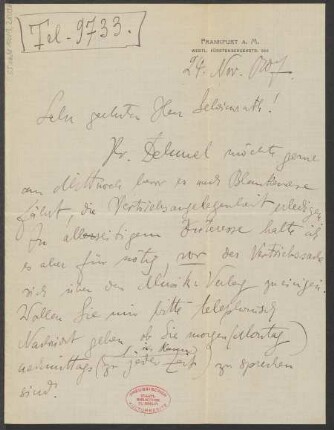 Tel. 9733.
FRANKFURT A. M.
24. Nov. 1907.
Sehr geehrter Herr !
Hr. Dehmel möchte gerne
am Mittwoch bevor er nach Blankenese
fährt, die Vertriebsangelegenheit erledigen.
Im allerseitigem Interesse halte ich
es aber für nötig vor der Vertriebssache
sich über den Musik-Verlag zu einigen.
Wollen Sie mir bitte telephonisch
Nachricht geben ob Sie morgen (Montag)
nachmittags (zu jeder Zeit) zu sprechen
sind?